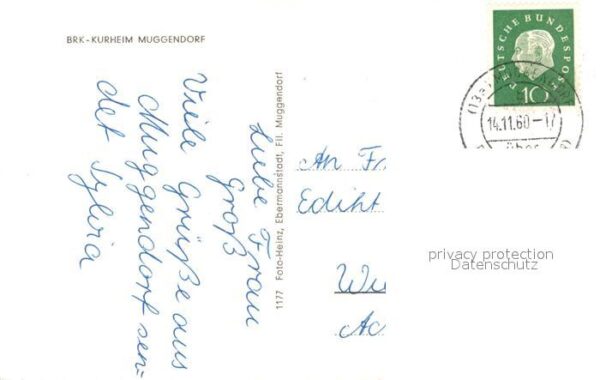 BRK-KURHEIM MUGGENDORF
DEUTSCHE BUNDESPOST
10
14.11.60-17
Liebe Frau
Groß
Viele Grüße aus
Muggendorf sen=
det Sylvia
1177 Foto-Heinz, Ebermannstadt, Fil. Muggendorf
An Fr
Ediht
privacy protection
Datenschutz